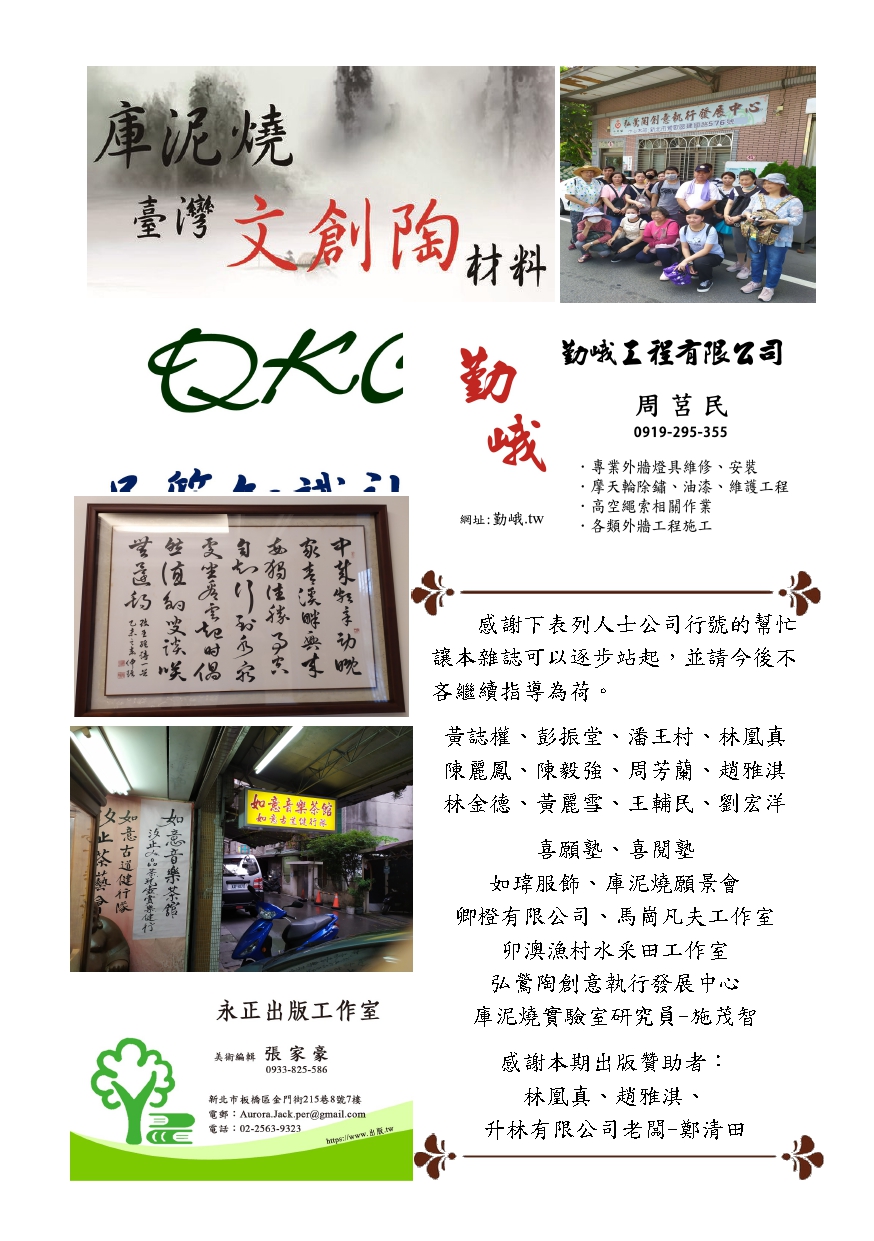 庫泥燒
臺灣
文創陶
材料
弘鶯陶創意執行發展中心
QKC
勤
峨
勤峨工程有限公司
周莒民
0919-295-355
．專業外牆燈具維修、安裝
．摩天輪除鏽、油漆、維護工程
．高空繩索相關作業
．各類外牆工程施工
網址:勤峨.tw
中歲頗好道晚
家南溪畔興來
每獨往勝事空
自知行到水窮
處坐看雲起時偶
然值林叟談笑
無還期
感謝下表列人士公司行號的幫忙
讓本雜誌可以逐步站起，並請今後不
吝繼續指導為荷。
黃誌權、彭振堂、潘王村、林凰真
陳麗鳳、陳毅強、周芳蘭、趙雅淇
林金德、黃麗雪、王輔民、劉宏洋
喜願塾、喜閱塾
如瑋服飾、庫泥燒願景會
卿燈有限公司、馬崗凡夫工作室
卯澳漁村水采田工作室
弘鶯陶創意執行發展中心
庫泥燒實驗室研究員-施茂智
感謝本期出版贊助者：
林凰真、趙雅淇、
升林有限公司老闆-鄭清田
如意音樂茶館
如意古道健行隊
如意音樂茶館
如意古道健行隊
汐止茶藝會
永正出版工作室
美術編輯 張家豪
0933-825-586
新北市板橋區金門街215巷8號7樓
電郵：Aurora.Jack.per@gmail.com
電話：02-2563-9323
https://www.出版.tw